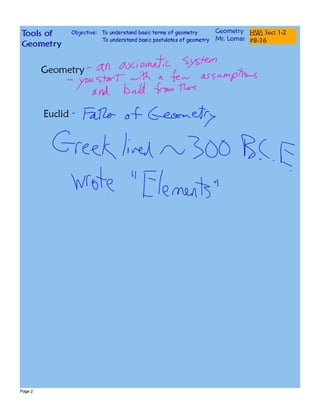 Tools of Geometry
Objective: To understand basic terms of geometry
To understand basic postulates of geometry
Geometry
Mr. Lomas
HW: Sect 1-2
#8-36
Geometry - an axiomatic system
- you start with a few assumptions
and build from there
Euclid - Father of Geometry
Greek lived ~ 300 B.C.E
wrote "Elements"
Page 2